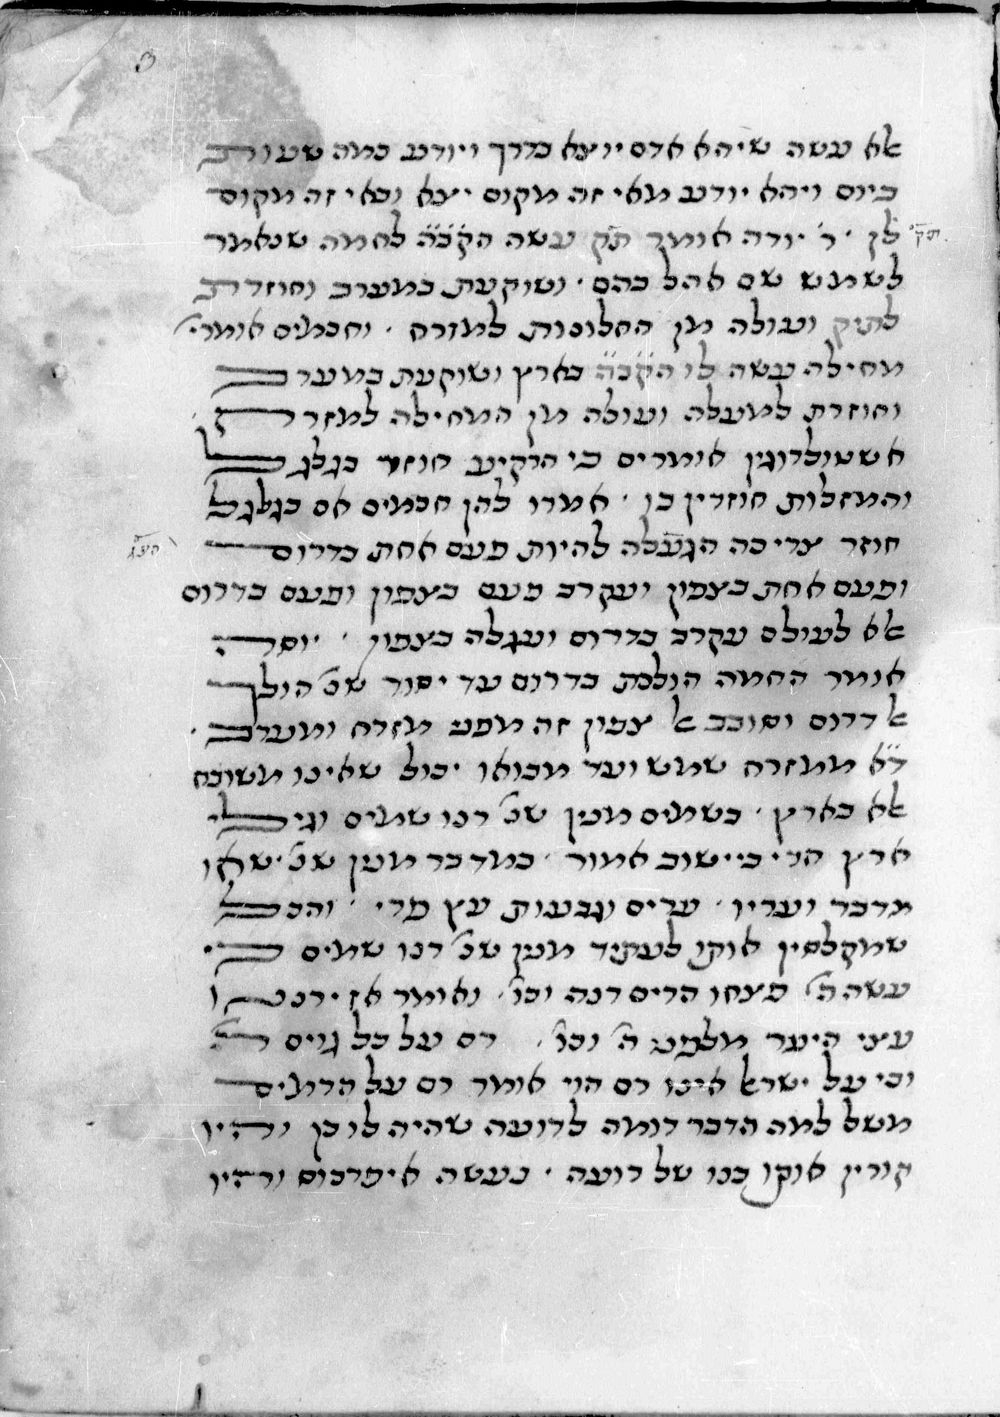 אלא עשה שיהא אדם יוצא בדרך ויודע כמה שעות
ביום ויהא יודע מאי זה מקום יצא ובאי זה מקום
לן · ר׳ יודה אומר תק עשה הק׳ב׳ה לחמה שנאמר
לשמש שם אהל בהם · ושוקעת במערב וחוזרת
לתיק ועולה מן החלונות למזרח · וחכמים אומרי׳
מחילה עשה לו הק׳ב׳ה בארץ ושוקעת במערב
וחוזרת למעלה ועולה מן המחילה למזרח
אשטולדוגין אומרים כי הרקיע חוזר כגלגל
והמזלות חוזרין בו · אמרו להן חכמים אם כגלגל
חוזר צריכה העגלה להיות פעם אחת בדרום
ופעם אחת בצפון ועקרב פעם בצפון ופעם בדרום
אלא לעולם עקרב בדרום ועגלה בצפון · יוסה
אומר החמה הולכת בדרום עד יסור שנ׳ הולך
אל דרום וסובב אל צפון זה מפני מזרח ומערב ·
ד׳א ממזרח שמש ועד מבואו יכול שאינו משובח
אלא בארץ · בשמים מנין שנ׳ רנו שמים וגילי
ארץ הרי בישוב אמור · במדבר מנין שנ׳ ישאו
מדבר ועריו · ערים וגבעות עץ פרי · והכל
שמקלסין אותו לעתיד מנין שנ׳ רנו שמים כי
עשה ה׳ פצחו הרים רנה וכו׳ · ואומר אז ירננו
עצי היער מלפני ה׳ וכו׳ · רם על כל גוים ה׳
וכי על ישראל אינו רם הוי אומר רם על הרמים
משל למה הדבר דומה לרועה שהיה לו בן והיו
קורין אותו בנו של רועה · נעשה איפרכוס והיו